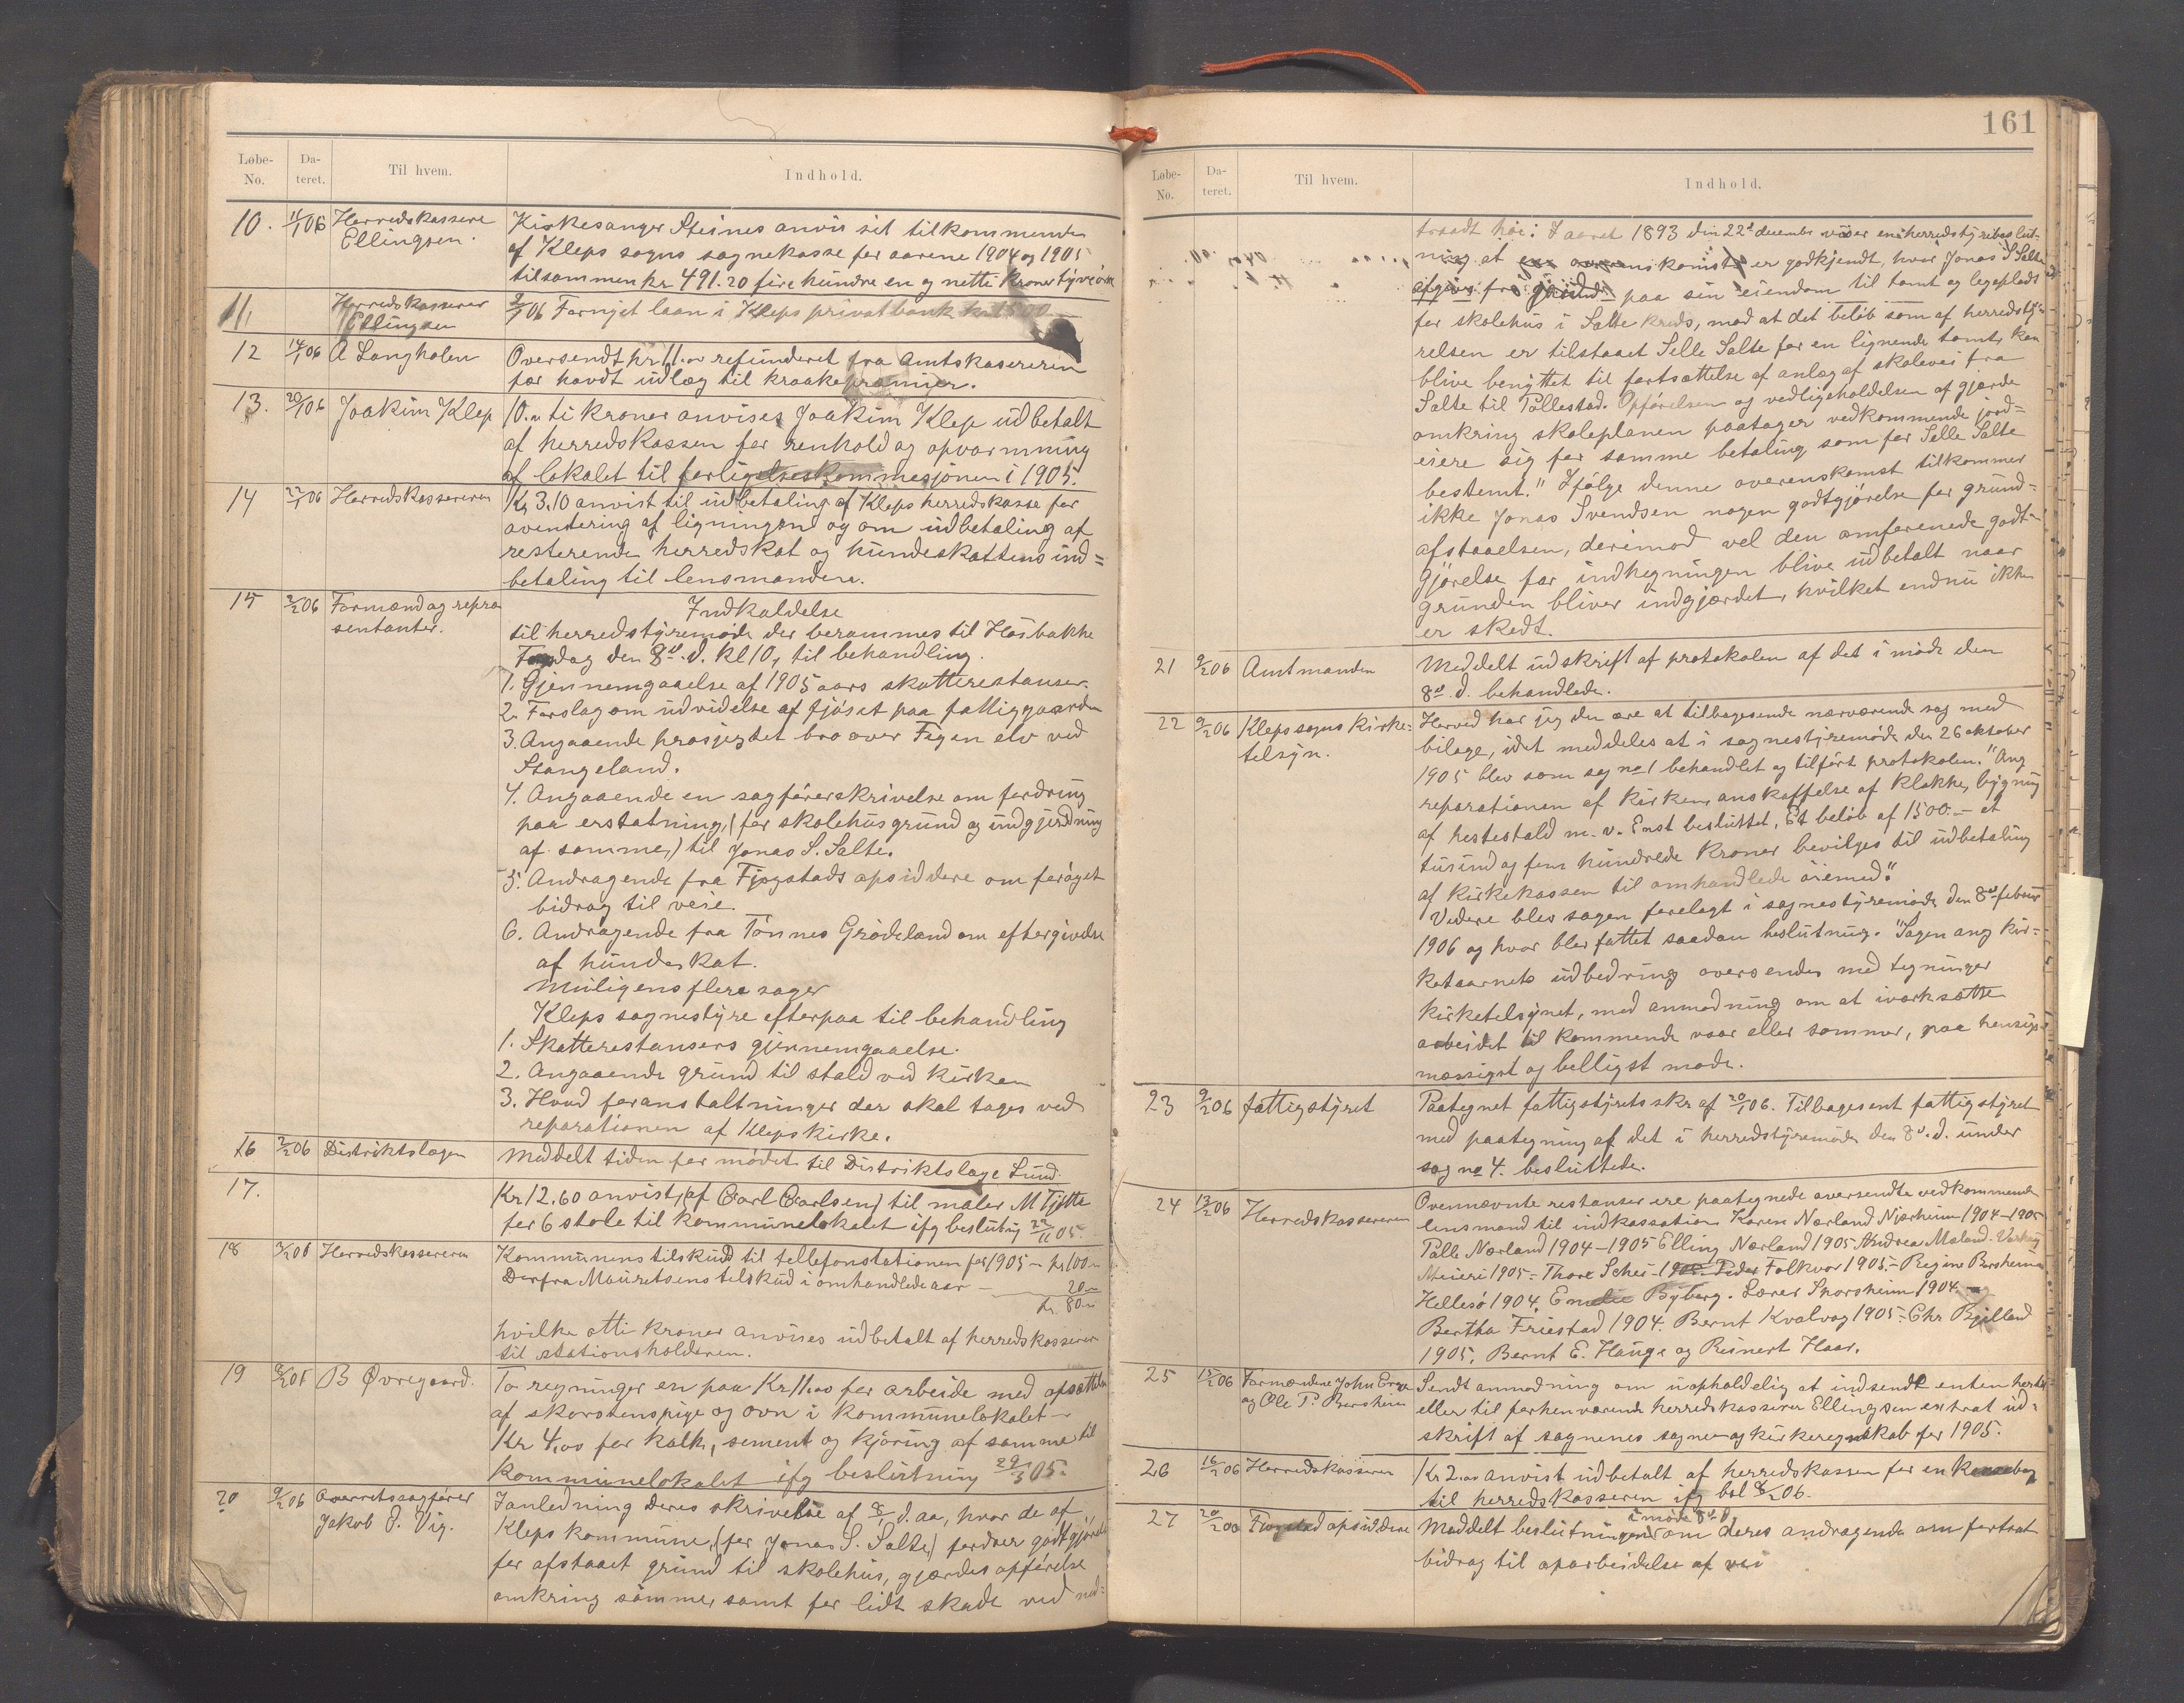 Løbe-No. Dateret. Til hvem. Indhold.
10. 11/1 06 Herredskassere Ellingsen. Kirkesanger Steines anvis sit tilkommende
af Kleps sogns sognekasse for aarene 1904 og 1905
tilsammen kr. 491.20 fire hundre en og nitti kroner tyve øre
11, Herredskasserer Ellingsen 9/1 06 Fornyet laan i Kleps privatbank
12 14/1 06 A Langholen Oversendt kr 11.00 refunderet fra Amtskasereren
for havdt udlæg til kraakepræmier.
13. 20/1 06 Joakim Klep 10.00 ti kroner anvises Joakim Klep udbetalt
af herredskassen for renhold og opvarmning
af lokalet til forligelseskommesjonen i 1905.
14 22/1 06 Herredskassereren Kr 3.10 anvist til udbetaling af Kleps herredskasse for
avertering af ligningen og om udbetaling af
resterende herredskat og hundeskattens ind=
betaling til lensmanden.
15 2/2 06 Formænd og repræsentanter. Indkaldelse
til herredstyremøde der berammes til Høibakke
dag den 8de d. kl 10, til behandling.
1. Gjennemgaaelse af 1905 aars skatterestanser.
2. Forslag om udvidelse af fjøset paa fattiggaarden
3. Angaaende prosjegtet bro over Figen elv ved
Stangeland.
4. Angaaende en sagførerskrivelse om fordring
paa erstatning, (for skolehusgrund og indgjerdning
af samme,) til Jonas S. Salte.
5. Andragende fra Fjogstads opsiddere om forøget
bidrag til veie.
6. Andragende fra Tønnes Grødeland om eftergivelse
af hundeskat.
Muligens flere sager
Kleps sognestyre efterpaa til behandling
1. Skatterestansers gjennemgaaelse.
2. Angaaende grund til stald ved kirken
3. Hvad foranstaltninger der skal tages ved
reparationen af Klepskirke.
16 2/2 06 Distriktslægen Meddelt tiden for mødet til Distriktslæge Lund.
17. Kr 12.60 anvist, (af Carl Carlsen) til maler M Tjøtta
for 6 stole til kommunelokalet ifg beslutng 22/11 05.
18 3/2 06 Herredskassereren Kommunens tilskud til tellefonstationen for 1905 – kr 100.–
Derfra Mauritsens telskud i omhandlede aar – 20.–
kr. 80.–
hvilke otti kroner anvises udbetalt af herredskasseren
til stationsholderen.
19 B Øvregaard. To regninger en paa Kr 11.00 for arbeide med opsætten
af skorstenspipe og ovn i kommunelokalet –
Kr 4.00 for kalk, sement og kjøring af samme til
kommunelokalet ifg beslutning 29/3 05.
20 9/2 06 Overretssagfører Jakob S. Vig. I anledning Deres skrivelse af d. aa, hvor de af
Kleps kommune, (for Jonas S. Salte) fordrer godtgjørelse
for afstaaet grund til skolehus, gjærdes opførelse
omkring samme, samt for lidt skade ved ned=
161
Løbe-No. Dateret. Til hvem. Indhold.
traadt høi: I aaret 1893 den 22de decembr viser en herredstyrebeslut-
ning at er godkjendt, hvor Jonas S Salte
paa sin eiendom til tomt og legeplads
for skolehus i Salte kreds, mod at det beløb som af herredsty=
relsen er tilstaaet Selle Salte for en lignende tomt, kan
blive benyttet til fortsættelse af anlæg af skolevei fra
Salte til Pollestad. Opførelsen og vedligeholdelsen af gjærde
omkring skoleplanen paatager vedkommende jord=
eiere sig for samme betaling som for Selle Salte
bestemt." Ifølge denne overenskomst tilkommer
ikke Jonas Svendsen nogen godtgjørelse for grund-
afstaaelsen, derimod vel den omførenede godt-
gjørelse for indhegningen blive udbetalt naar
grunden bliver indgjærdet, hvilket endnu ikke
er skedt.
21 9/2 06 Amtmanden Meddelt udskrift af protokolen af det i møde den
8de d. behandlede.
22 9/2 06 Kleps sogns kirketelsyn. Herved har jeg den ære at tilbagesende nærværende sag med
bilage, idet meddeles at i sognestyremøde den 26 oktober
1905 blev som sag no 1 behandlet og tilført protokolen. "Ang
reparationen af kirken, anskaffelse af klokke, bygning
af hestestald m. v. Enst besluttet. Et beløb af 1500.– et
tusind og fem hundrede kroner bevilges til udbetaling
af kirkekassen til omhandlede øiemed."
Videre blev sagen forelagt i sognestyremøde den 8de februar
1906 og hvor blev fattet saadan beslutning. "Sagen ang kir=
ketaarnets udbedring oversendes med tegninger
kirketelsynet, med anmodning om at iværksætte
arbeidet til kommende vaar eller sommer, paa hensigts-
mæssigst og belligst møde.
23 9/2 06 fattigstyret Paategnet fattigstyrets skr af 20/1 06. Tilbagesent fattigstyret
med paategning af det i herredstyremøde den 8de d. under
sag no 4. besluttede.
24 13/2 06 Herredskassereren Ovennævnte restanser ere paategnede oversendte vedkommende
lensmand til indkassation Karen Nærland Njærheim 1904–1905
Palle Nærland 1904–1905 Elling Nærland 1905 Andrea Maland. Varhaug
Meieri 1905 = Thore Schei – 1905 – Peder Folkvor 1905. – Regine Bersheim
Hellesø 1904, Byberg. Lærer Skorsheim 1904.
Bertha Friestad 1904. Bernt Kvalvag 1905 – Chr Bjelland
1905, Bernt E. Hauge og Reinert Haar.
25 15/2 06 Formændene John Erga og Ole P. Bersheim Sendt anmodning om uopholdelig at indsende enten
eller til forhenværende herredskasserer Ellingsen extrat ud=
skrift af sognenes sogne og kirkeregnskab for 1905.
26 16/2 06 Herredskasseren Kr 2.00 anvist udbetalt af herredskassen for en
til herredskasseren ifg bsl 8/2 06.
27 20/2 06 opsiddere Meddelt beslutningen i møde 8de d. om deres andragende om fortsat
bidrag til oparbeidelse af vei